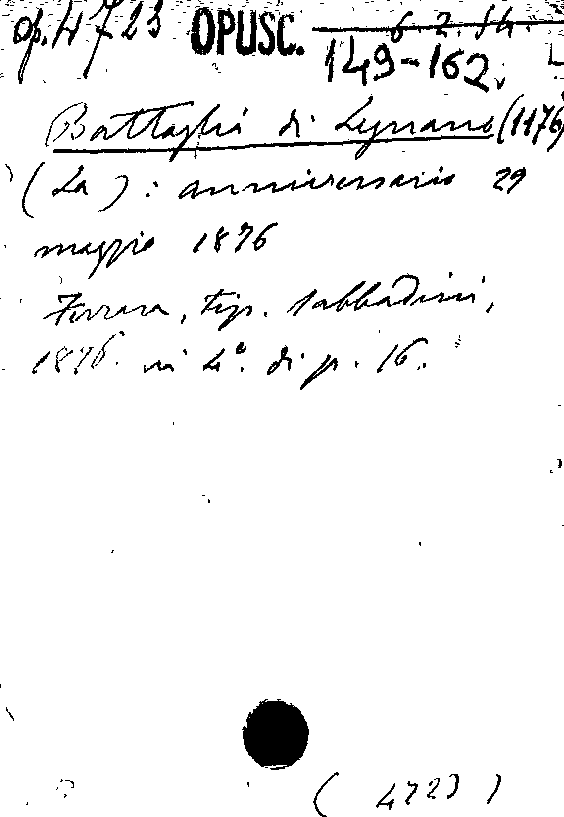 op. 4723 OPUSC. 6. 2. 54.
149-162.
Battaglia di Legnano (1176)
(La): anniversario 29
maggio 1876
Ferrara, tip. Sabbadini,
1876. in 4°. di p. 16.
(4723)